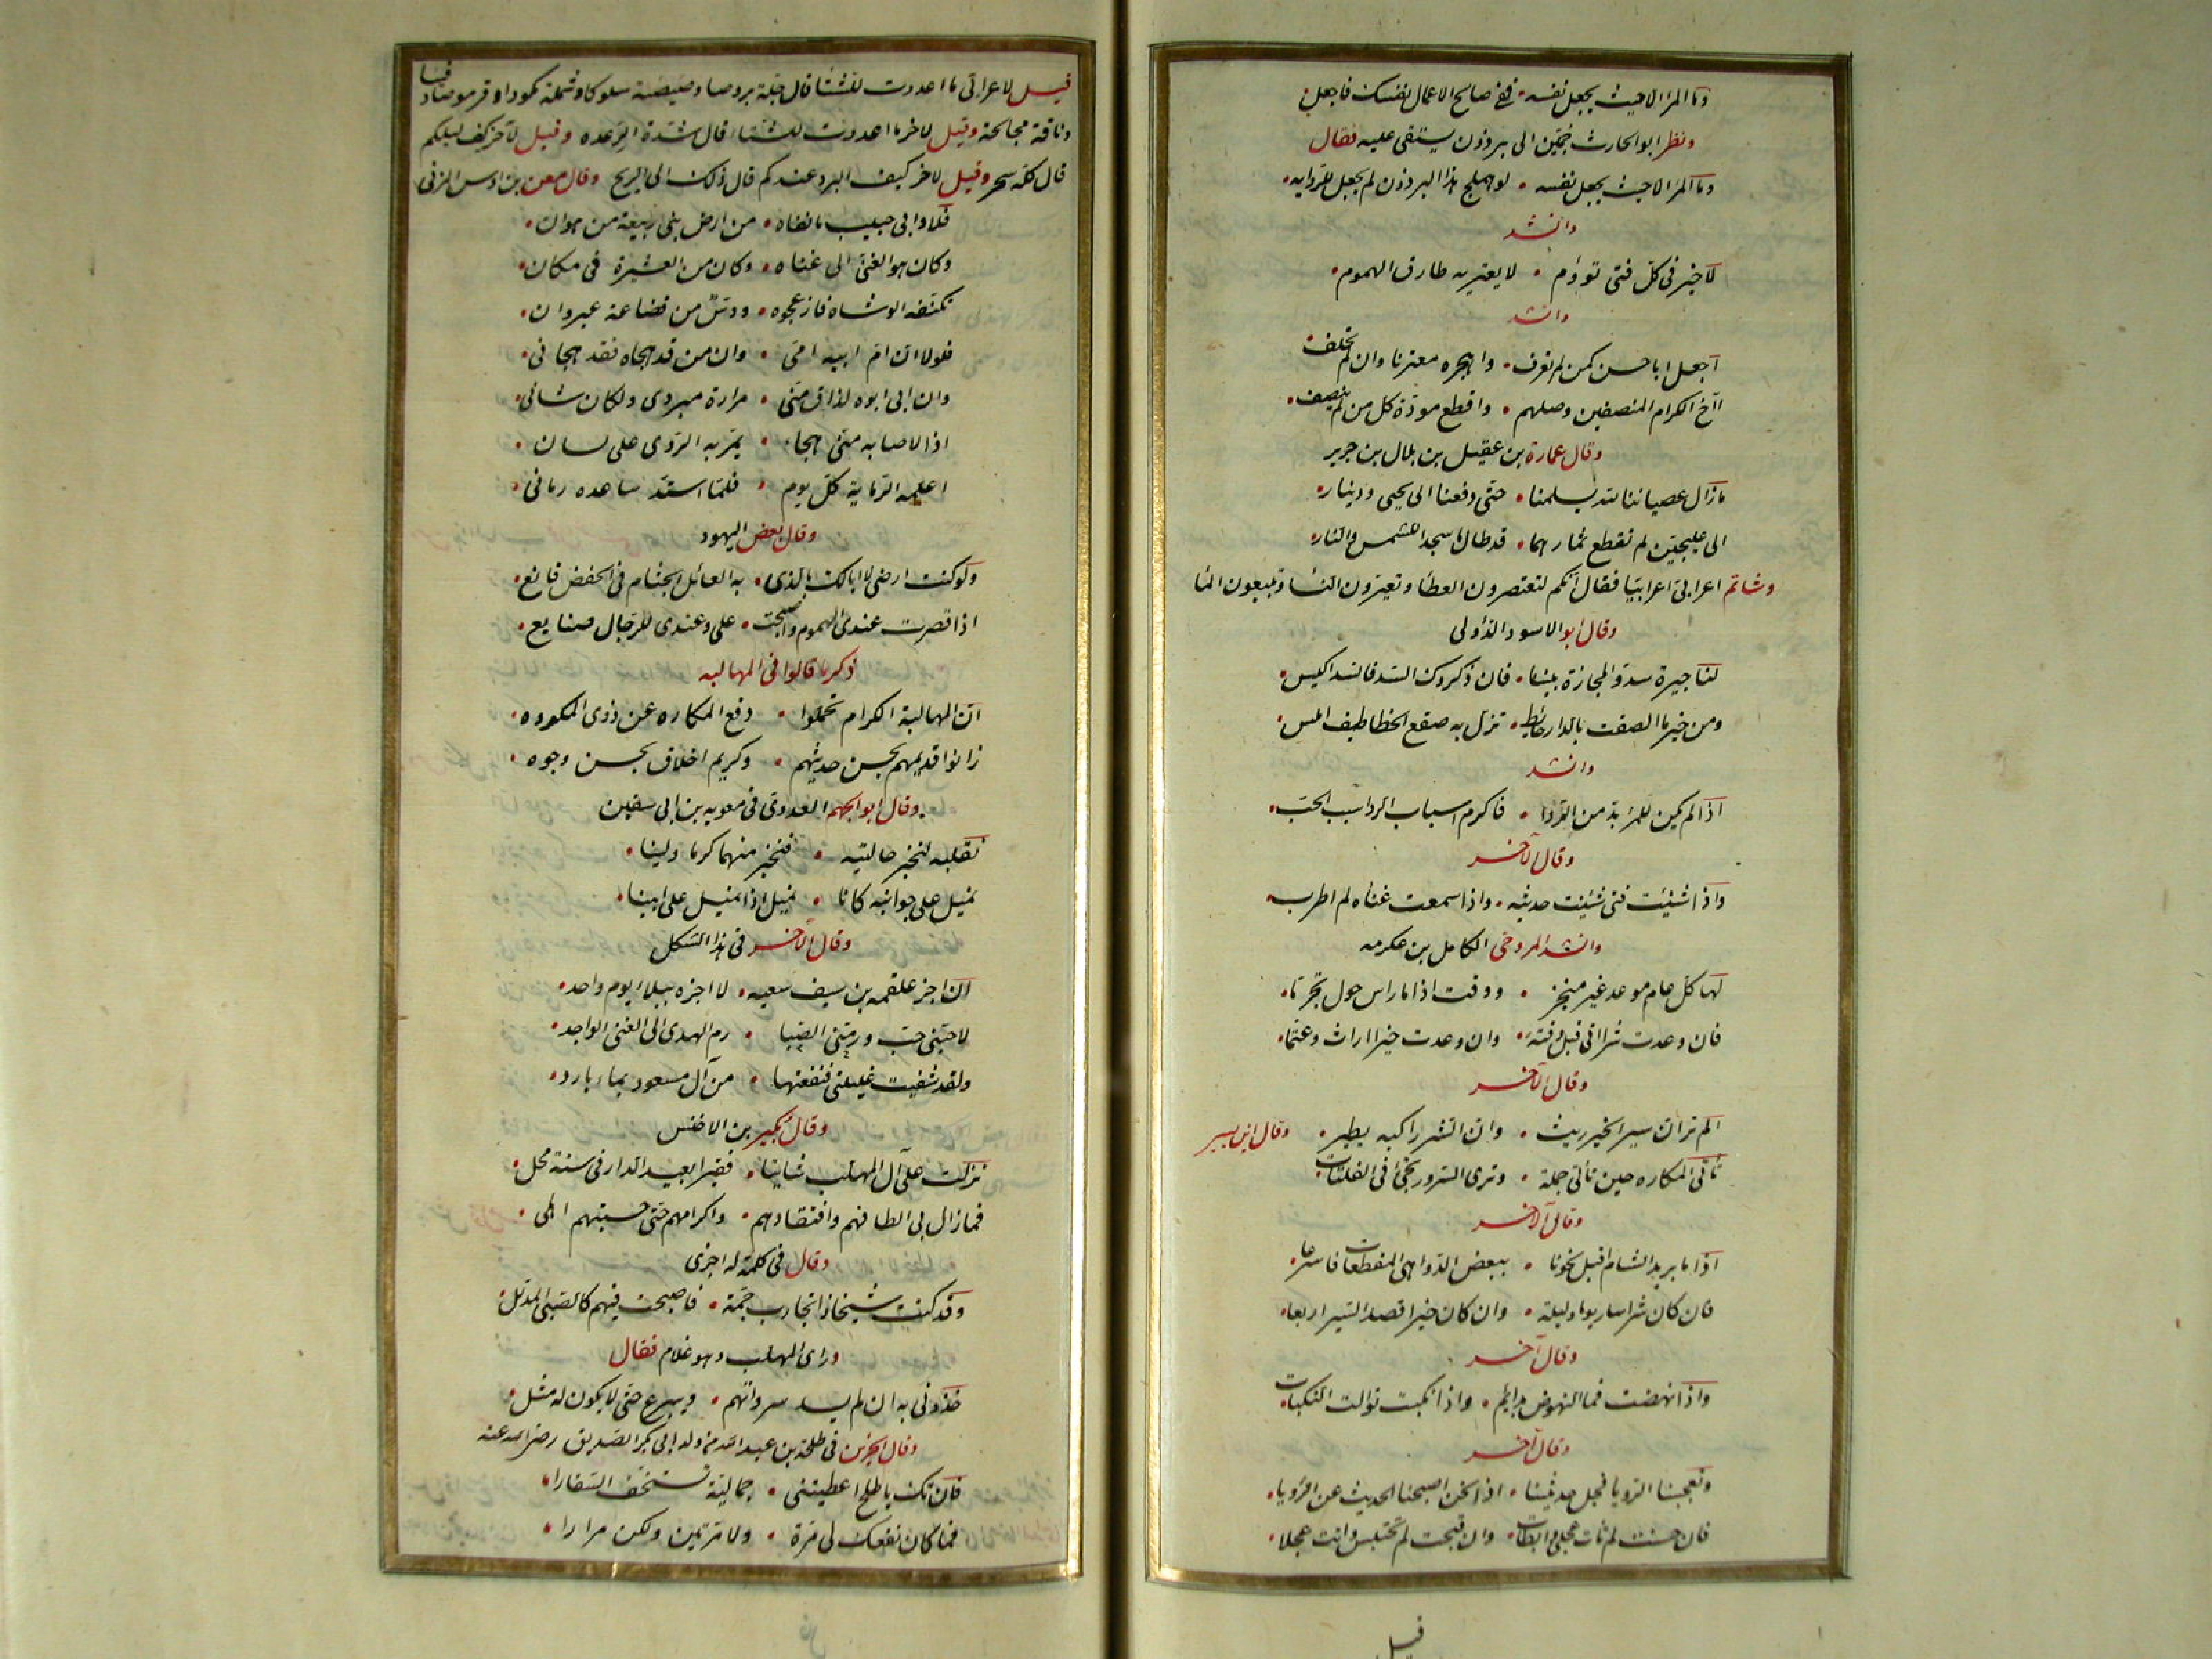 وما المرء الا حيث يجعل نفسه • ففي صالح الاعمال نفسك فاجعل •
ونظر ابو الحارث جمّين الى برذون يستقى عليه فقال
وما المرء الا حيث يجعل نفسه • لو هملج هذا البرذون لم يجعل للرّوايه •
وانشد
لا خير فى كلّ فتى نوؤم • لا يعتريه طارق الهموم •
وانشد
اجعل ابا حسن كمن لم تعرف • واهجره معتزما وان لم تخلف
آخ الكرام المنصفين وصلهم • واقطع مودّة كل من لم ينصف •
وقال عمارة بن عقيل بن بلال بن جرير
ما زال عصياننا لله يسلمنا • حتّى دفعنا الى يحيى ودينار •
الى عليجين لم تقطع ثمارهما • قد طال ما سجدا للشمس والنّار •
وشاتم اعرابى اعرابيّا فقال انكم لتعتصرون العطا وتعيرون النسا وتبيعون الما
وقال ابو الاسود الدّؤلى
لنا جيرة سدّوا المجازة بيننا • فان ذكروك السّد فالسّد اكيس •
ومن خير ما الصقت بالدار حائط • تزل به صقع الخطاطيف املس •
وانشد
اذا لم يكن للمرء بدّ من الرّدا • فاكرم اسباب الردا سبب الحبّ •
وقال الآخر
واذا شنئت فتى شنئت حديثه • واذا سمعت غناه لم اطرب •
وانشد المروحى الكامل بن عكرمه
لها كلّ عام موعد غير منجز • ووقت اذا ما راس حول تجرّما •
فان وعدت شرا اتى قبل وقته • وان وعدت خيرا اراث وعتّما •
وقال الآخر
الم تر ان سير الخير ريث • وان الشر راكبه يطير • وقال ابن يسير
تأتى المكاره حين تأتى جملة • وترى السّرور يجئ فى الفلتات •
وقال الآخر
اذا ما بريد الشام اقبل نحونا • ببعض الدّواهى المفظعات فاسرعا •
فان كان شرا سار يوما وليلة • وان كان خيرا قصد السّير اربعا •
وقال آخر
واذا نهضت فما النهوض بدايم • واذا نكبت توالت النكبات •
وقال آخر
وتعجبنا الرّويا فجل حديثنا • اذا نحن اصبحنا الحديث عن الرّويا •
فان حسنت لم تات عجلى وابطات • وان قبحت لم تحتبس واتت عجلا •
قيل
قيل لاعرابى ما اعددت للشتا قال جلّة بروصا وصيصية سلوكا وشملة مكودا وقرموصا دفيا
وناقة مجالحة وقيل لاخر ما اعددت للشتا قال شدّة الرّعده وقيل لآخر كيف ليلكم
قال كله سحر وقيل لاخر كيف البرد عندكم قال ذلك الى الريح وقال معن بن اوس المزنى
فلا وابى حبيب ما نفاه • من ارض بنى ربيعة من هوان •
وكان هو الغنى الى غناه • وكان من العشيرة فى مكان •
تكنفه الوشاه فازعجوه • ودسّ من قضاعة غير وان •
فلولا انّ امّ ابيه امّى • وان من قد هجاه فقد هجانى •
وان ابى ابوه لذاق منّى • مرارة مبردى ولكان شانى •
اذا لاصابه منّى هجاء • يمرّ به الرّوى على لسان •
اعلمه الرّماية كلّ يوم • فلمّا استدّ ساعده رمانى •
وقال بعض اليهود
ولو كنت ارضى لا ابالك بالذى • به العائل الجثام فى الخفض قانع •
اذا قصرت عندى الهموم واصبحت • على وعندى للرّجال صنايع •
ذكر ما قالوا فى المهالبه
انّ المهالبة الكرام تحملوا • دفع المكاره عن ذوى المكروه •
زانوا قديمهم بحسن حديثهم • وكريم اخلاق بحسن وجوه •
وقال ابو الجهم العدوى فى معويه بن ابى سفين
نقلبه لنخبر حالتيه • فنخبر منهما كرما ولينا •
نميل على جوانبه كانا • نميل اذا نميل على ابينا •
وقال الآخر فى هذا الشكل
ان اجز علقمه بن سيف سعيه • لا اجزه ببلاء يوم واحد •
لاحبّنى حبّ ورمّنى الصّبا • رم الهدى الى الغنى الواجد •
ولقد شفيت غليلتى فنقعتها • من آل مسعود بماء بارد •
وقال بكير بن الاخنس
نزلت على آل المهلب شاتيا • فقيرا بعيد الدار فى سنة محل •
فما زال بى الطافهم وافتقادهم • واكرامهم حتى حسبتهم اهلى •
وقال فى كلمة له اخرى
وقد كنت شيخا ذا تجارب جمّة • فاصبحت فيهم كالصّبى المدلّل •
وراى المهلب وهو غلام فقال
خذونى به ان لم يسد سرواتهم • ويبرع حتّى لا يكون له مثل •
وقال الحزين فى طلحة بن عبد الله من ولد ابى بكر الصّديق رضى الله عنه
فان تك يا طلح اعطيتنى • جمالية تستخف السّفارا •
فما كان نفعك لى مرّة • ولا مرّتين ولكن مرارا •